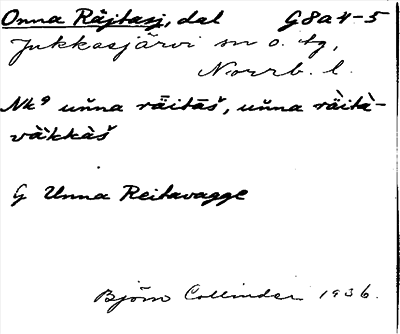 Onna Råjtasj, dal G8a4-5
Jukkasjärvi sn o. tg,
Norrb. l.
Nk⁹ uňna räitāš, uňna räità-
väkkàš
G Unna Reitavagge
Björn Collinder 1936.